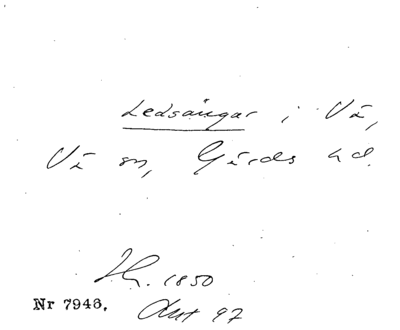 Ledsängar i Vä,
Vä sn, Gärds hd.
1850
Nr 7943. 97